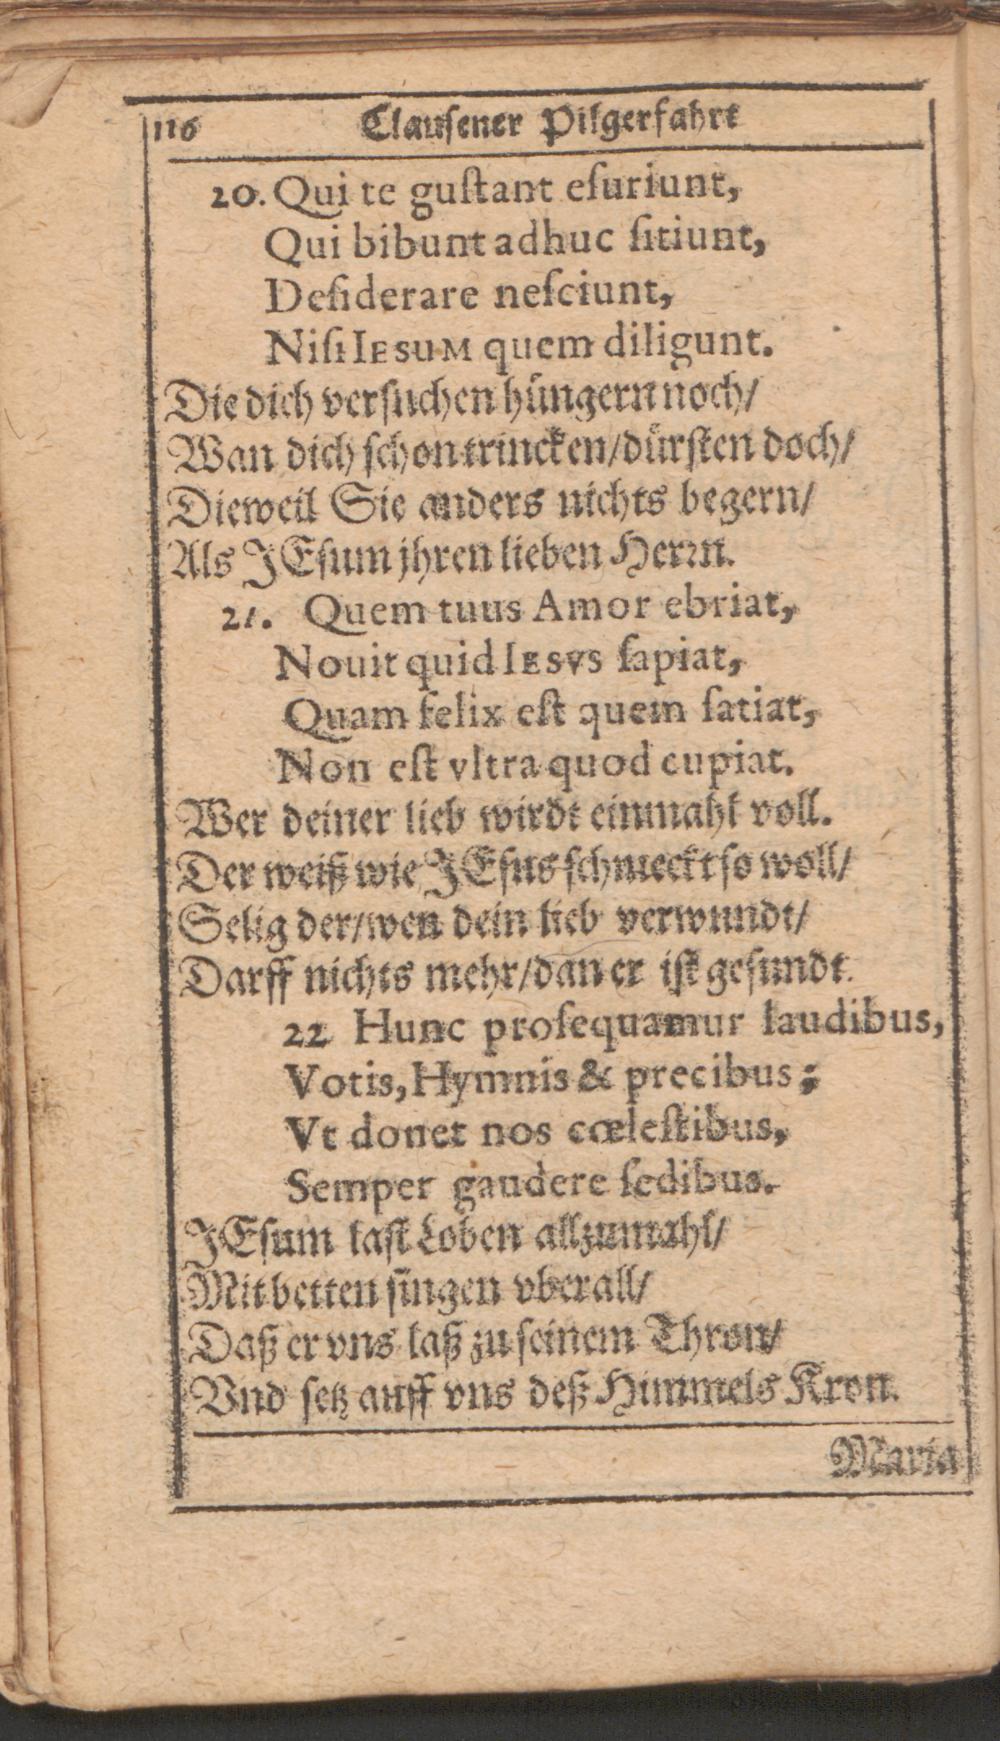 116 Clausener Pilgerfahrt
20. Qui te guſtant eſuriunt,
Qui bibunt adhuc ſitiunt,
Deſiderare neſciunt,
Niſi IESUM quem diligunt.
Die dich verſuchen hüngern noch/
Wan dich ſchon trincken/dürſten doch/
Dieweil Sie anders nichts begern/
Als JEſum jhren lieben Herꝛn.
21. Quem tuus Amor ebriat,
Nouit quid IESVS ſapiat,
Quam felix eſt quem ſatiat,
Non eſt vltra quod cupiat.
Wer deiner lieb wirdt einmahl voll.
Der weiß wie JEſus ſchmeckt ſo woll/
Selig der/wen dein lieb verwundt/
Darff nichts mehr/dan er iſt geſundt.
22 Hunc proſequamur laudibus,
Votis, Hymnis & precibus;
Vt donet nos cœleſtibus,
Semper gaudere ſedibus.
JEſum laſt Loben allzumahl/
Mit betten ſingen vberall/
Daß er vns laß zu ſeinem Thron/
Vnd ſetz auff vns deß Himmels Kron.
Maria